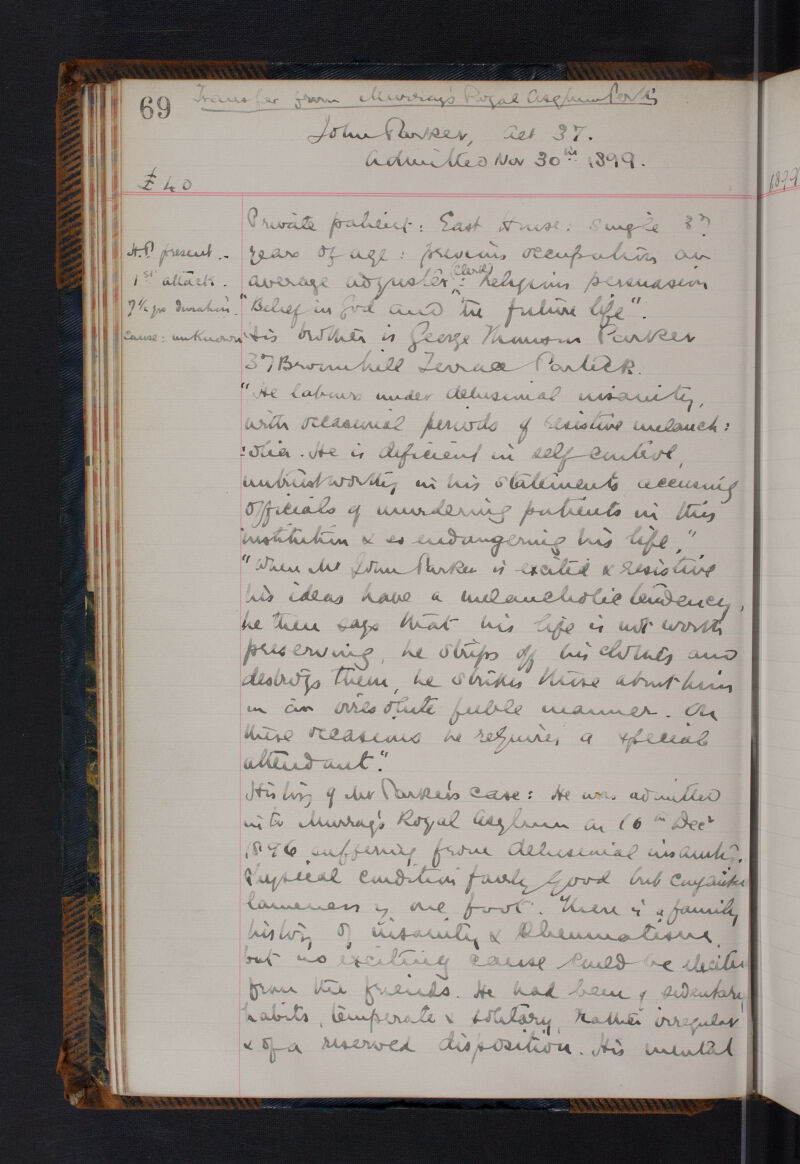 69
Transfer from Murray's Royal Asylum Perth
John Parker, aet 37.
Admitted Nov 30th 1899.
£40
1899
H.P. present.
1st attack.
7½ yrs duration.
Cause: unknown
Private patient: East House: Single 37
years of age: previous occupation an
average adjuster (Clerk): Religious persuasion
"Belief in God and the future life".
His brother is George Thomson Parker
37 Broomhill Terrace Partick.
"He labours under delusional insanity,
with occasional periods of resistive melanch:
:olia. He is deficient in self control,
untrustworthy in his statements accusing
officials of murdering patients in this
institution & so endangering his life."
"When Mr John Parker is excited & resistive
his ideas have a melancholic tendency,
he then says that his life is not worth
preserving, he strips off his clothes and
destroys them, he strikes those about him
in an irresolute feeble manner. On
these occasions he requires a special
attendant".
History of Mr Parker's case: He was admitted
into Murray's Royal Asylum on 16th Decr
1896 suffering from delusional insanity.
Physical condition fairly good but
lameness of one foot. There is a family
history of insanity & Rheumatism,
but no exciting cause could be
from the friends. He had been of sedentary
habits, temperate & solitary, rather irregular
& of a reserved disposition. His mental